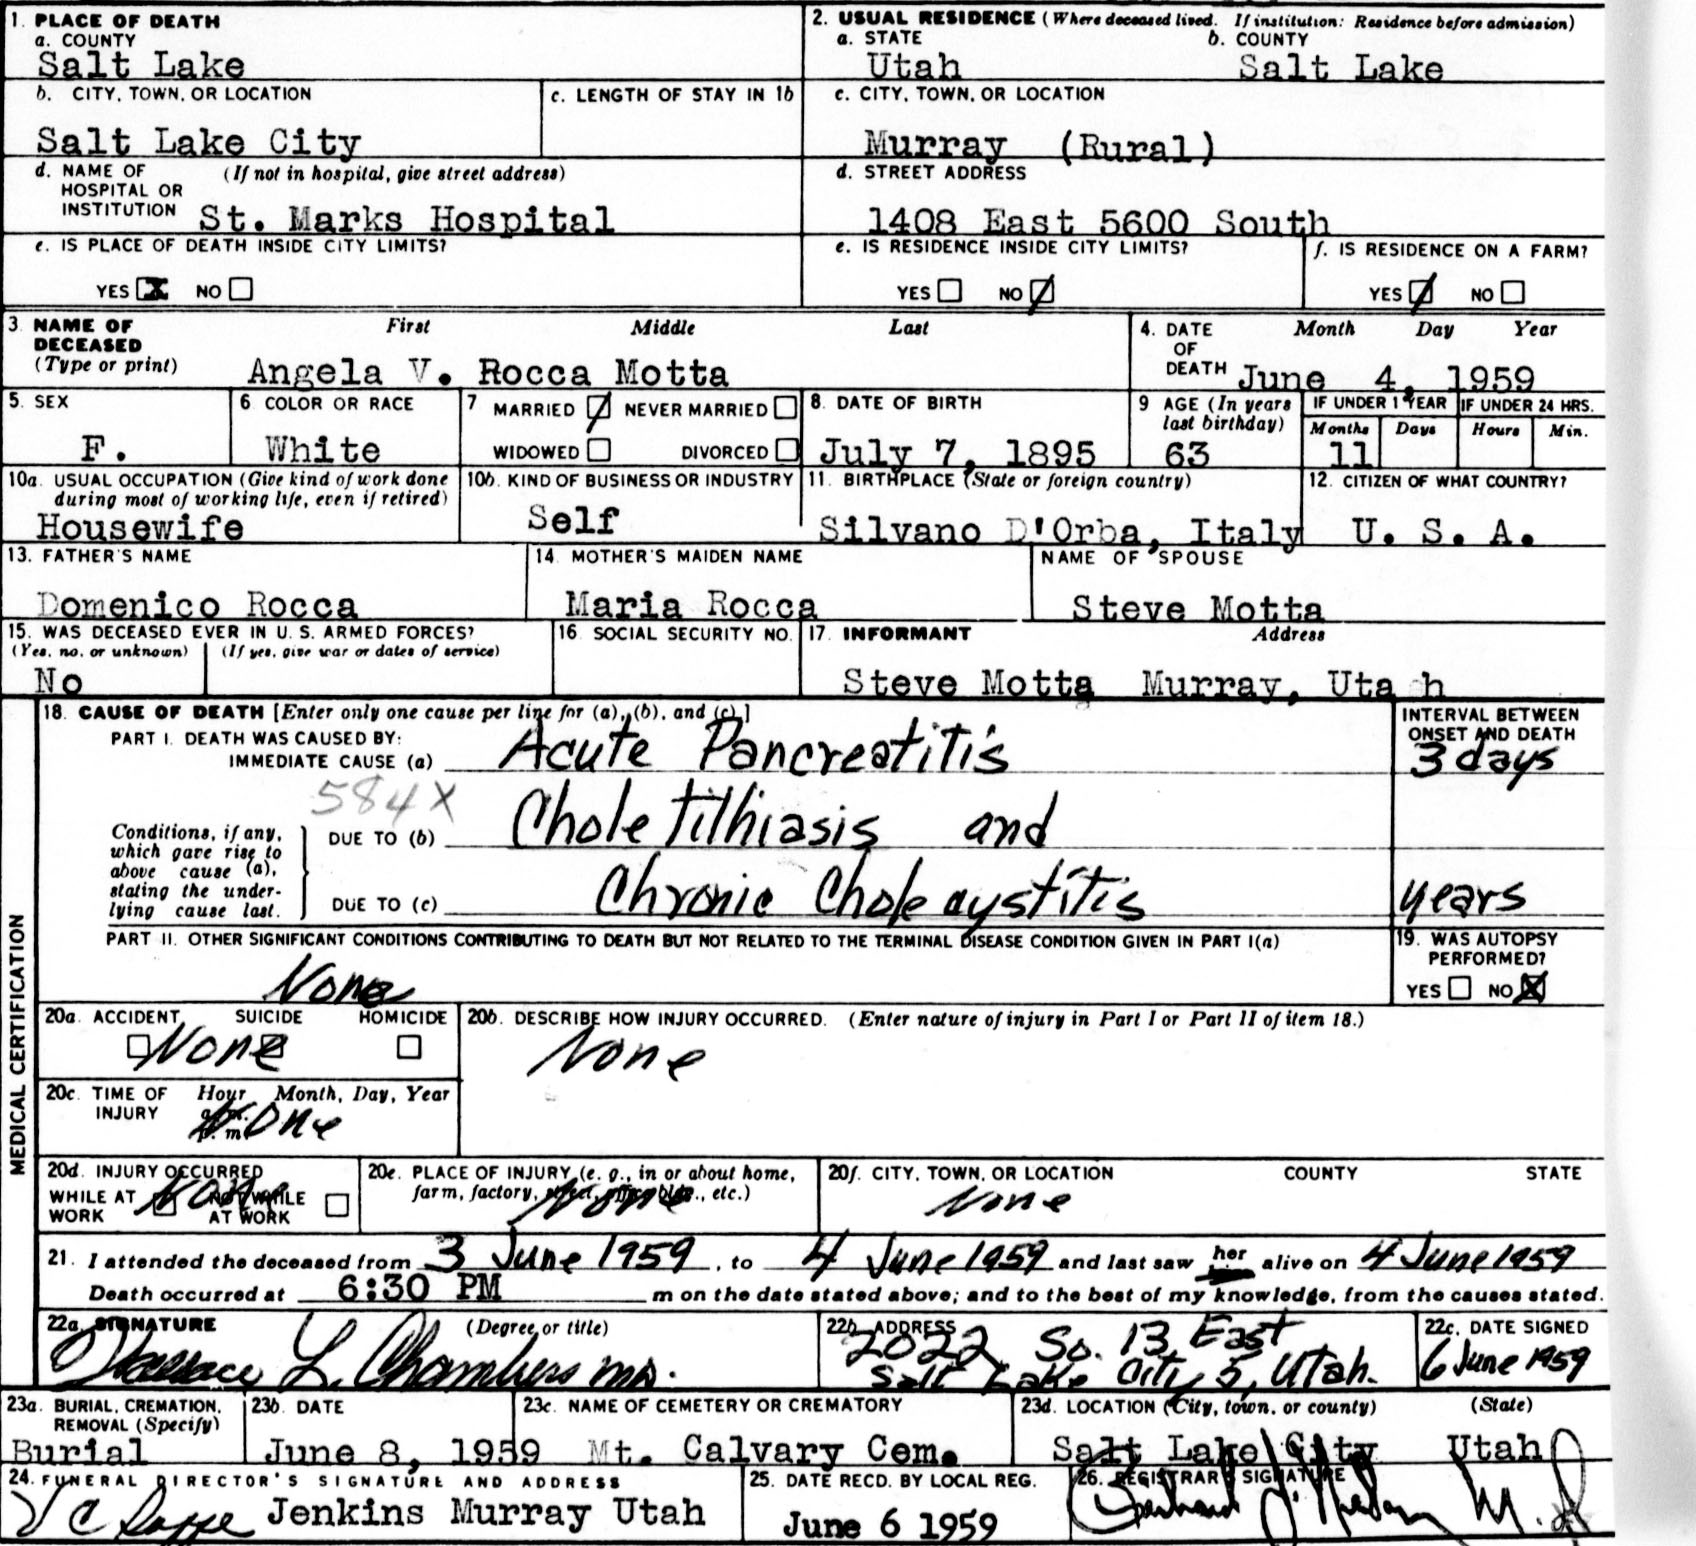 1. PLACE OF DEATH
a. COUNTY
Salt Lake
2. USUAL RESIDENCE (Where deceased lived. If institution: Residence before admission)
a. STATE
Utah
b. COUNTY
Salt Lake
b. CITY, TOWN, OR LOCATION
Salt Lake City
c. LENGTH OF STAY IN 1b
c. CITY, TOWN, OR LOCATION
Murray (Rural)
d. NAME OF (If not in hospital, give street address)
HOSPITAL OR
INSTITUTION St. Marks Hospital
d. STREET ADDRESS
1408 East 5600 South
e. IS PLACE OF DEATH INSIDE CITY LIMITS?
YES X NO
e. IS RESIDENCE INSIDE CITY LIMITS?
YES NO
f. IS RESIDENCE ON A FARM?
YES NO
3. NAME OF DECEASED
(Type or print)
First Middle Last
Angela V. Rocca Motta
4. DATE OF DEATH
Month Day Year
June 4, 1959
5. SEX
F.
6. COLOR OR RACE
White
7 MARRIED NEVER MARRIED
WIDOWED DIVORCED
8. DATE OF BIRTH
July 7, 1895
9 AGE (In years last birthday)
63
IF UNDER 1 YEAR
Months Days
11
IF UNDER 24 HRS.
Hours Min.
10a. USUAL OCCUPATION (Give kind of work done
during most of working life, even if retired)
Housewife
10b. KIND OF BUSINESS OR INDUSTRY
Self
11. BIRTHPLACE (State or foreign country)
Silvano D'Orba, Italy
12. CITIZEN OF WHAT COUNTRY?
U. S. A.
13. FATHER'S NAME
Domenico Rocca
14. MOTHER'S MAIDEN NAME
Maria Rocca
NAME OF SPOUSE
Steve Motta
15. WAS DECEASED EVER IN U. S. ARMED FORCES?
(Yes, no, or unknown) (If yes, give war or dates of service)
No
16. SOCIAL SECURITY NO.
17. INFORMANT Address
Steve Motta Murray, Uta h
MEDICAL CERTIFICATION
18. CAUSE OF DEATH [Enter only one cause per line for (a), (b), and (c).]
PART I. DEATH WAS CAUSED BY:
IMMEDIATE CAUSE (a) Acute Pancreatitis
INTERVAL BETWEEN
ONSET AND DEATH
3 days
584X
Conditions, if any,
which gave rise to
above cause (a),
stating the under-
lying cause last.
DUE TO (b) Choletilhiasis and
DUE TO (c) Chronic Cholecystitis
years
PART II. OTHER SIGNIFICANT CONDITIONS CONTRIBUTING TO DEATH BUT NOT RELATED TO THE TERMINAL DISEASE CONDITION GIVEN IN PART I(a)
None
19. WAS AUTOPSY
PERFORMED?
YES NO X
20a. ACCIDENT SUICIDE HOMICIDE
None
20b. DESCRIBE HOW INJURY OCCURRED. (Enter nature of injury in Part I or Part II of item 18.)
None
20c. TIME OF INJURY
Hour Month, Day, Year
a. m.
p. m.
None
20d. INJURY OCCURRED
WHILE AT WORK NOT WHILE AT WORK
None
20e. PLACE OF INJURY (e. g., in or about home,
farm, factory, street, office bldg., etc.)
None
20f. CITY, TOWN, OR LOCATION COUNTY STATE
None
21. I attended the deceased from 3 June 1959, to 4 June 1959 and last saw her alive on 4 June 1959
Death occurred at 6:30 PM m on the date stated above; and to the best of my knowledge, from the causes stated.
22a. SIGNATURE (Degree or title)
Wallace L. Chambers MD.
22b. ADDRESS
2022 So. 13 East
Salt Lake City 5, Utah.
22c. DATE SIGNED
6 June 1959
23a. BURIAL, CREMATION,
REMOVAL (Specify)
Burial
23b. DATE
June 8, 1959
23c. NAME OF CEMETERY OR CREMATORY
Mt. Calvary Cem.
23d. LOCATION (City, town, or county) (State)
Salt Lake City Utah
24. FUNERAL DIRECTOR'S SIGNATURE AND ADDRESS
Jenkins Murray Utah
25. DATE RECD. BY LOCAL REG.
June 6 1959
26. REGISTRAR'S SIGNATURE